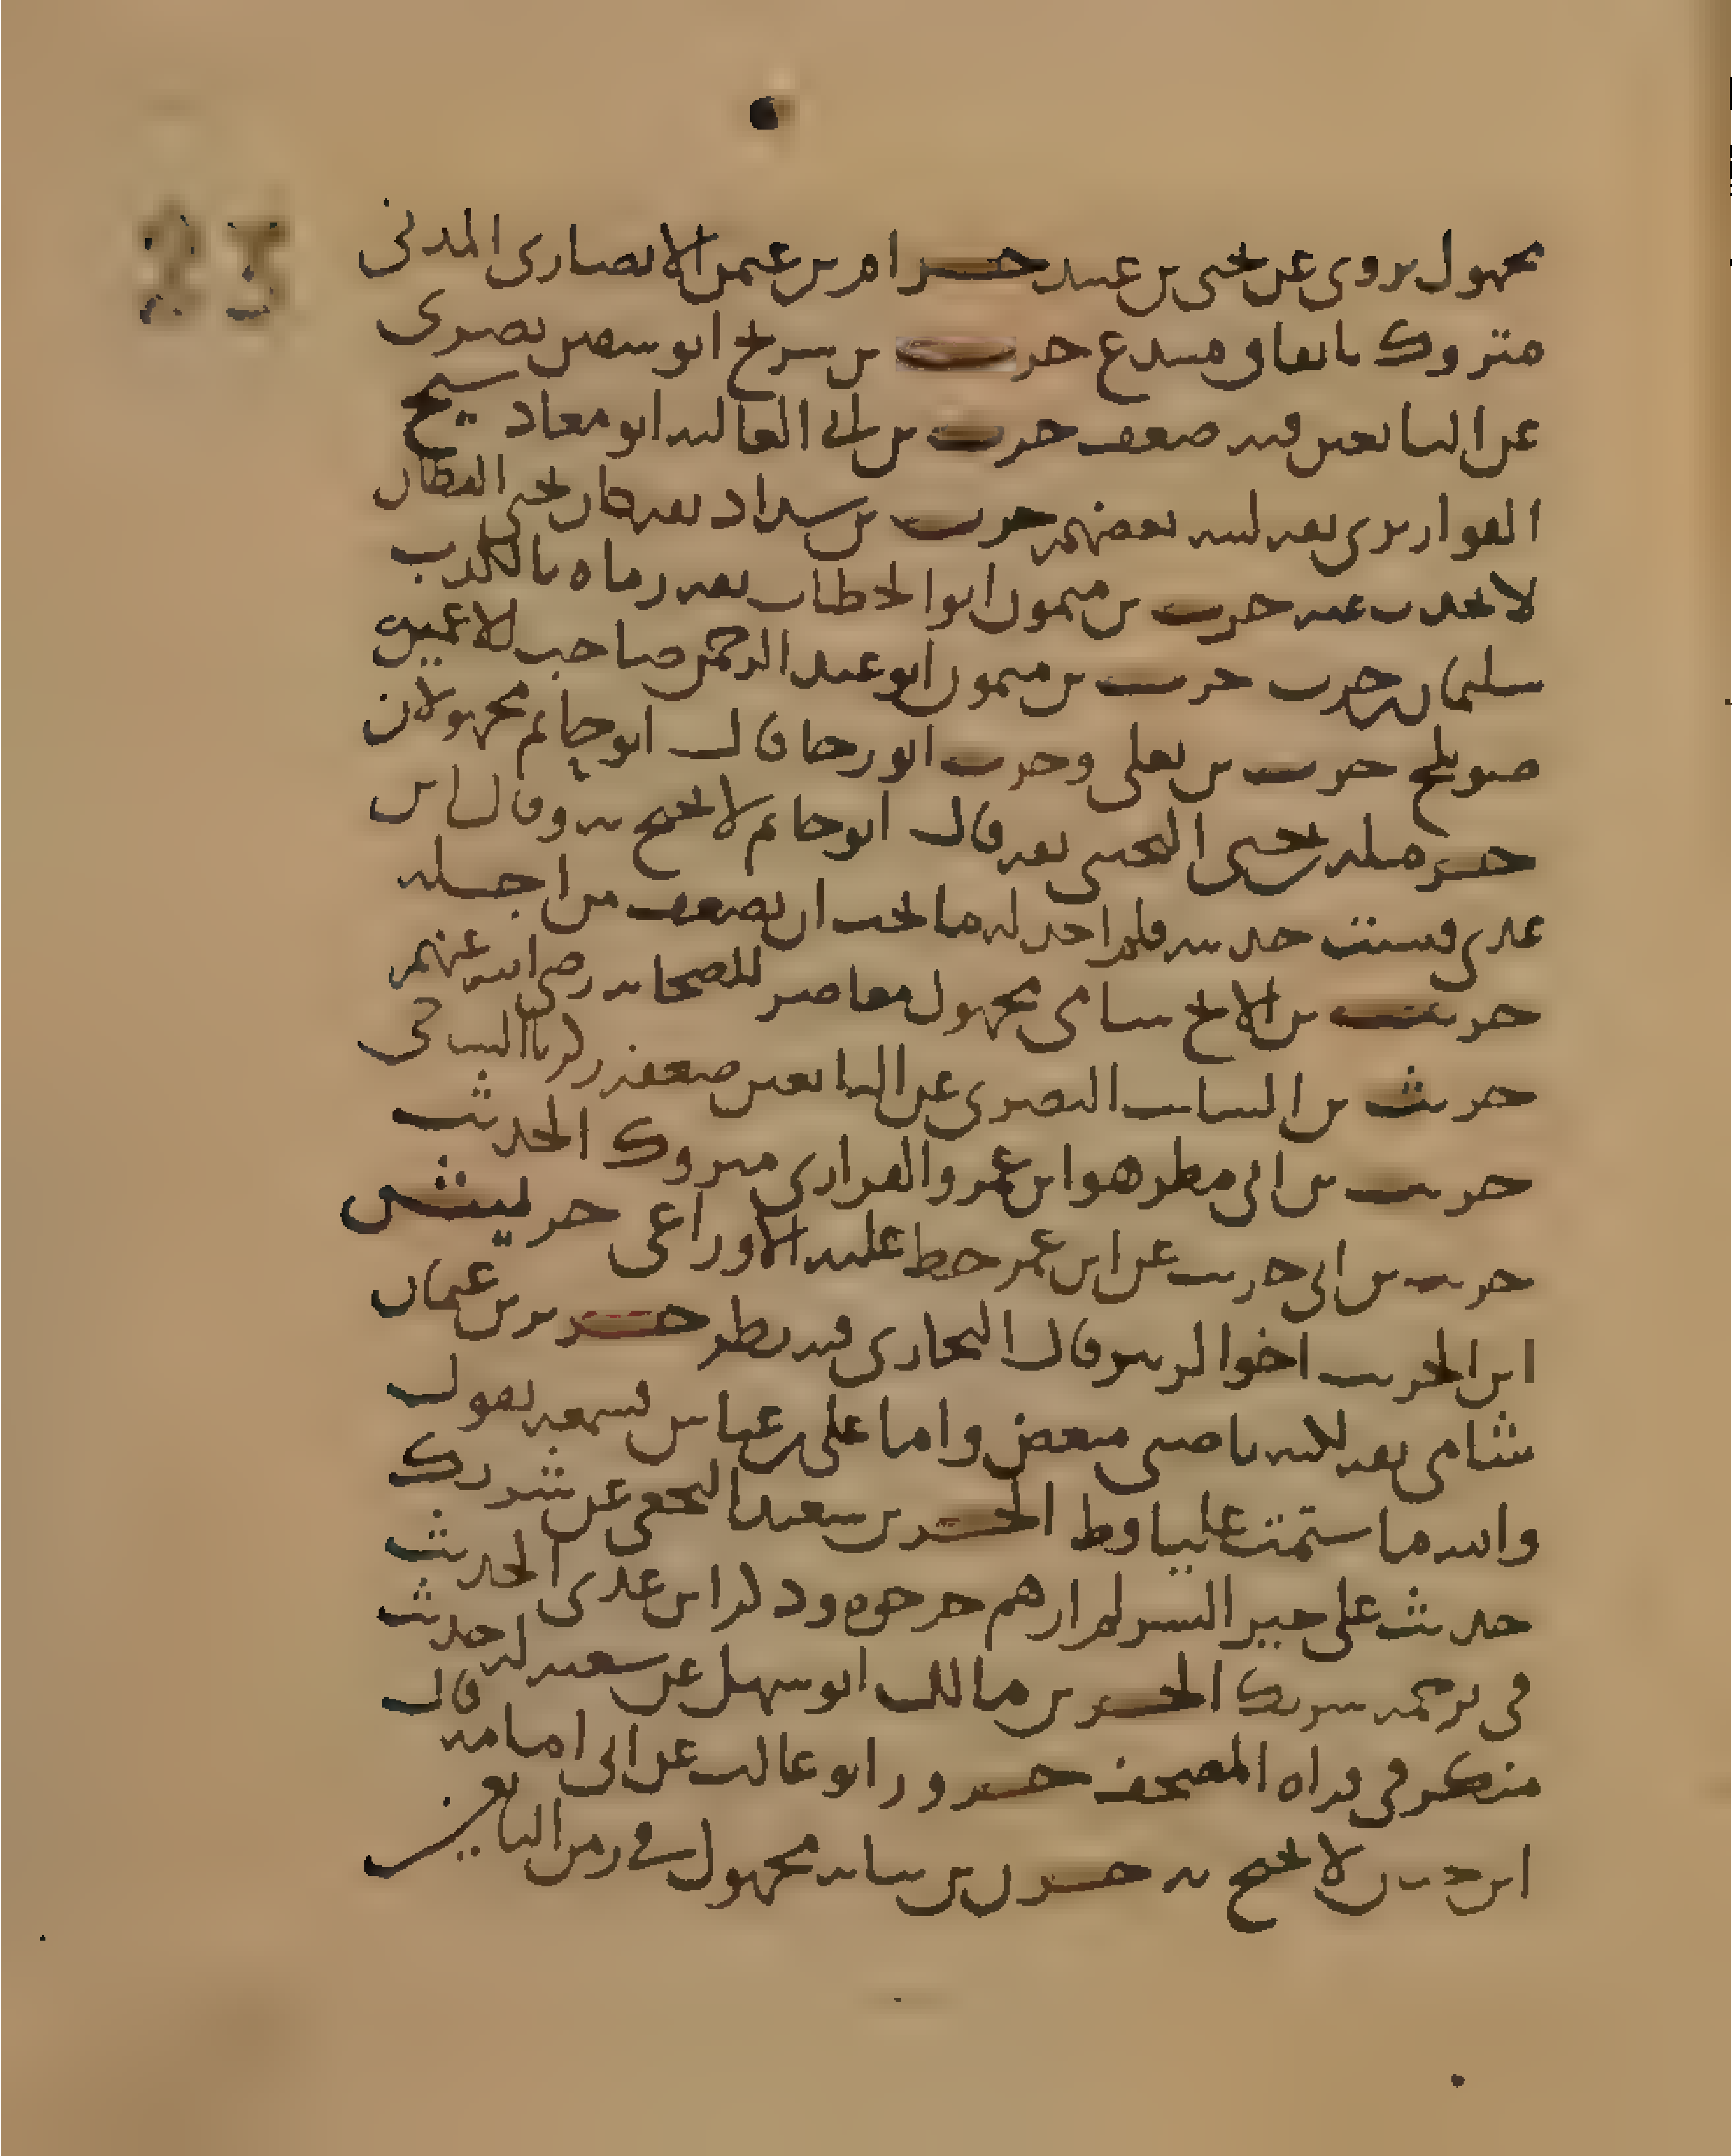 مجهول يروي عن يحيى بن عبيد حرام بن عثمن الانصاري المدني
متروك باتفاق مبتدع حرب بن سريج ابو سفين بصري
عن التابعين فيه ضعف حرب بن ابي العالية ابو معاذ شيخ
القواريري ثقة لينه بعضهم حرب بن شداد ثقة كان يحيى القطان
لا يحدث عنه حرب بن ميمون ابو الخطاب ثقة رماه بالكذب
سليمان بن حرب حرب بن ميمون ابو عبد الرحمن صاحب الاغمية
صويلح حرب بن يعلى وحرب ابو رجا قال ابو حاتم مجهولان
حرملة بن يحيى التجيبي ثقة قال ابو حاتم لا يحتج به وقال ابن
عدي فتشت حديثه فلم اجد له ما يجب ان يضعف من اجله
حريث بن الابح شامي مجهول معاصر للصحابة رضي الله عنهم
حريث بن السائب البصري عن التابعين ضعفه زكريا الساجي
حريث بن ابي مطر هو ابن عمرو الفزاري متروك الحديث
حريث بن ابي حريث عن ابن عمر حط عليه الاوزاعي حريش
ابن الخريت اخو الزبير قال البخاري فيه نظر حريز بن عثمان
شامي ثقة لكنه ناصبي مبغض واما علي بن عياش فسمعه يقول
والله ما شتمت عليا قط الحر بن سعيد النخعي عن شريك
حديث علي خير البشر لم ارهم جرحوه وذكر ابن عدي الحديث
في ترجمة شريك الحر بن مالك ابو سهل عن شعبة له حديث
منكر في قراة المصحف حزور ابو غالب عن ابي امامة قال
ابن حبان لا يحتج به مجهول في زمن التابعين